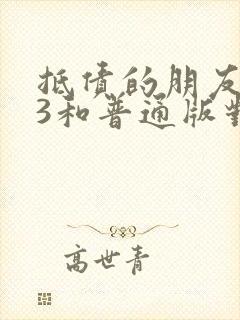 抵债的朋友
3和普通版對
高世青